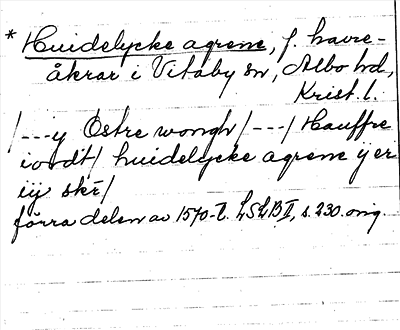 * Huidelycke agrene, f. havre-
åkrar i Vitaby sn, Albo hd,
Krist. l.
/---y Östre wongh/---/ Hauffre
iordt/ huidelycke agrene ÿ er
iiÿ skr/
förra delen av 1570-t. LSLB II, s. 230. orig.